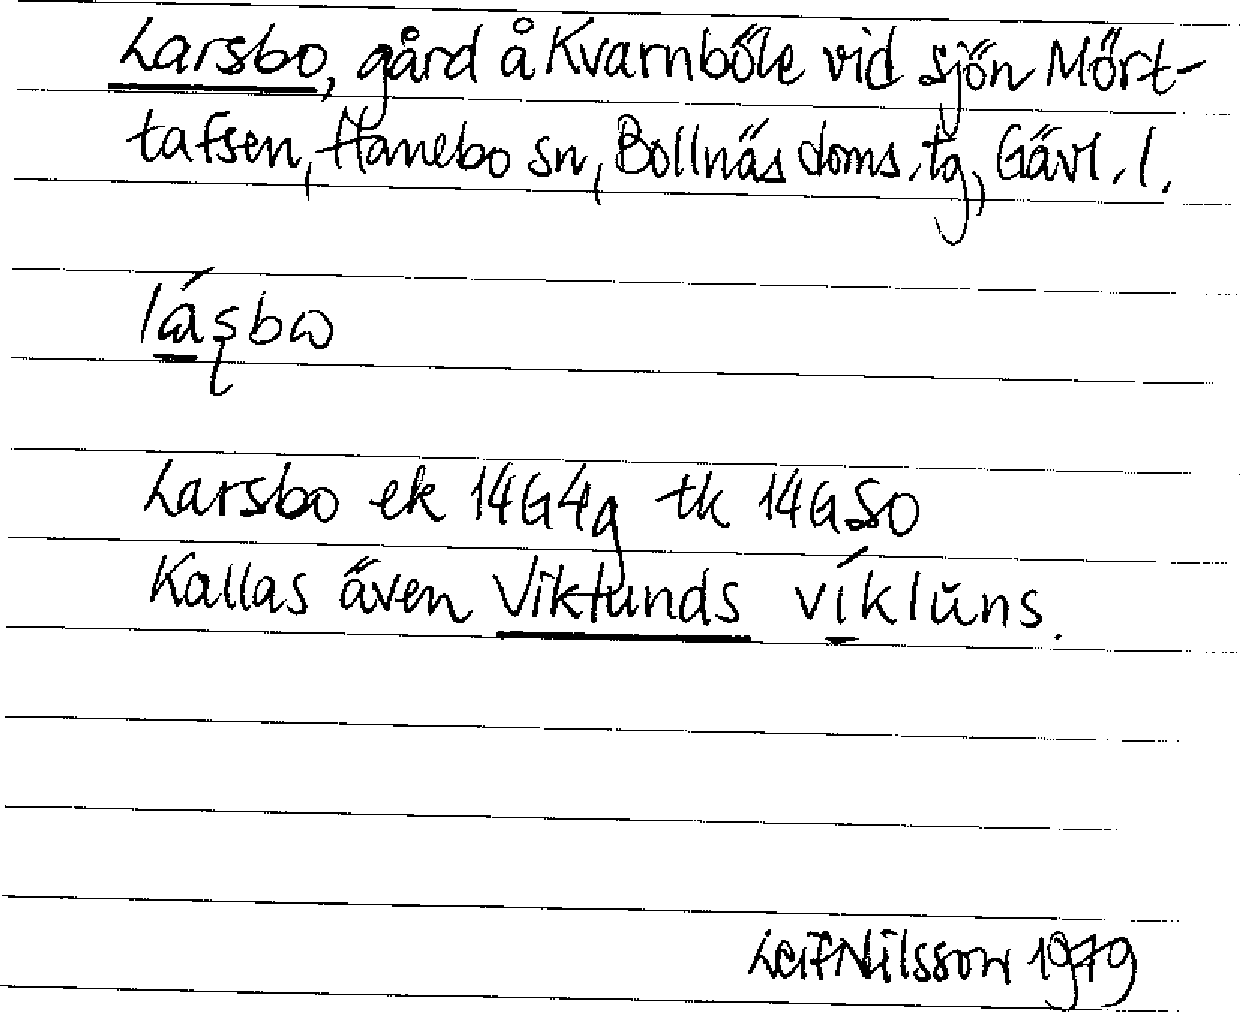 Larsbo, gård å Kvarnböle vid sjön Mört-
tafsen, Hanebo sn, Bollnäs doms.tg, Gävl.l.
lásbω
Larsbo ek 14G4g tk 14GSO
Kallas även Viklunds víklŭns.
Leif Nilsson 1979